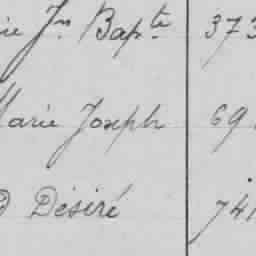 ie Jn Bapte 373
Marie Joseph 69
D Désiré 741